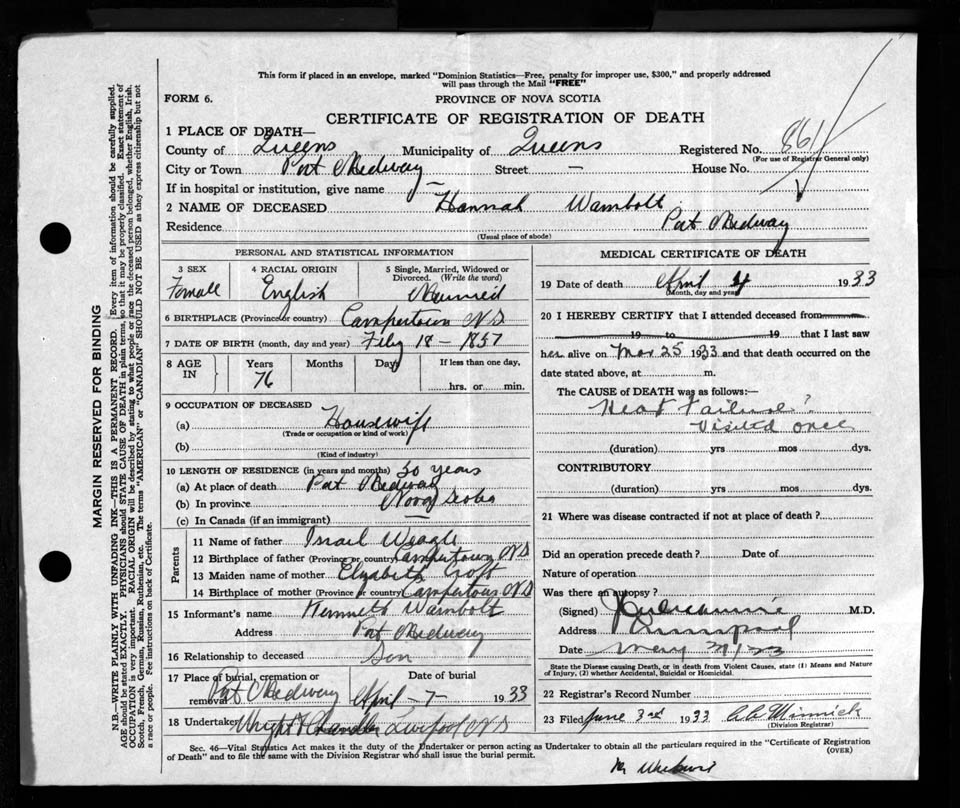 This form if placed in an envelope, marked "Dominion Statistics—Free, penalty for improper use, $300," and properly addressed
will pass through the Mail "FREE"
FORM 6.
PROVINCE OF NOVA SCOTIA
CERTIFICATE OF REGISTRATION OF DEATH
1 PLACE OF DEATH—
County of Queens Municipality of Queens Registered No. 861
(For use of Registrar General only)
City or Town Port Medway Street — House No.
If in hospital or institution, give name —
2 NAME OF DECEASED Hannah Wambolt
Residence Port Medway
(Usual place of abode)
PERSONAL AND STATISTICAL INFORMATION
3 SEX 4 RACIAL ORIGIN 5 Single, Married, Widowed or
Divorced. (Write the word)
Female English Married
6 BIRTHPLACE (Province or country) Campertown NS
7 DATE OF BIRTH (month, day and year) Feby 18 - 1857
8 AGE IN Years Months Days If less than one day,
76
hrs. or min.
9 OCCUPATION OF DECEASED
(a) Housewife
(Trade or occupation or kind of work)
(b)
(Kind of industry)
10 LENGTH OF RESIDENCE (in years and months) 50 years
(a) At place of death Port Medway
(b) In province Nova Scotia
(c) In Canada (if an immigrant) —
Parents
11 Name of father Israel Weagle
12 Birthplace of father (Province or country) Campertown NS
13 Maiden name of mother Elizabeth Croft
14 Birthplace of mother (Province or country) Campertown NS
15 Informant's name Kenneth Wambolt
Address Port Medway
16 Relationship to deceased Son
17 Place of burial, cremation or Date of burial
removal Port Medway April - 7 - 1933
18 Undertaker Wright Chandler Liverpool NS
MEDICAL CERTIFICATE OF DEATH
19 Date of death April 4 1933
(Month, day and year)
20 I HEREBY CERTIFY that I attended deceased from
19 to 19 that I last saw
her alive on Mar 25 1933 and that death occurred on the
date stated above, at m.
The CAUSE OF DEATH was as follows:—
Heart Failure?
Visited once
(duration) yrs mos dys.
CONTRIBUTORY
(duration) yrs mos dys.
21 Where was disease contracted if not at place of death?
Did an operation precede death? Date of
Nature of operation
Was there an autopsy?
(Signed) M.D.
Address
Date May
State the Disease causing Death, or in death from Violent Causes, state (1) Means and Nature
of Injury, (2) whether Accidental, Suicidal or Homicidal.
22 Registrar's Record Number
23 Filed June 3rd 1933
(Division Registrar)
Sec. 46—Vital Statistics Act makes it the duty of the Undertaker or person acting as Undertaker to obtain all the particulars required in the "Certificate of Registration
of Death" and to file the same with the Division Registrar who shall issue the burial permit. (OVER)
MARGIN RESERVED FOR BINDING
N.B.—WRITE PLAINLY WITH UNFADING INK—THIS IS A PERMANENT RECORD. Every item of information should be carefully supplied.
AGE should be stated EXACTLY. PHYSICIANS should STATE CAUSE OF DEATH in plain terms, so that it may be properly classified. Exact statement of
OCCUPATION is very important. RACIAL ORIGIN will be described by stating to what people or race the deceased person belonged, whether English, Irish,
Scotch, French, German, Russian, Ruthenian, etc. The terms "AMERICAN" or "CANADIAN" SHOULD NOT BE USED as they express citizenship but not
a race or people. Fee instructions on back of Certificate.